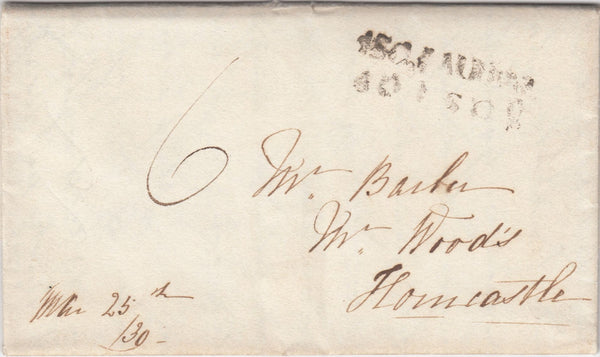 6
Mr. Barber
Mr. Wood's
Horncastle
Mar 25th
/30-